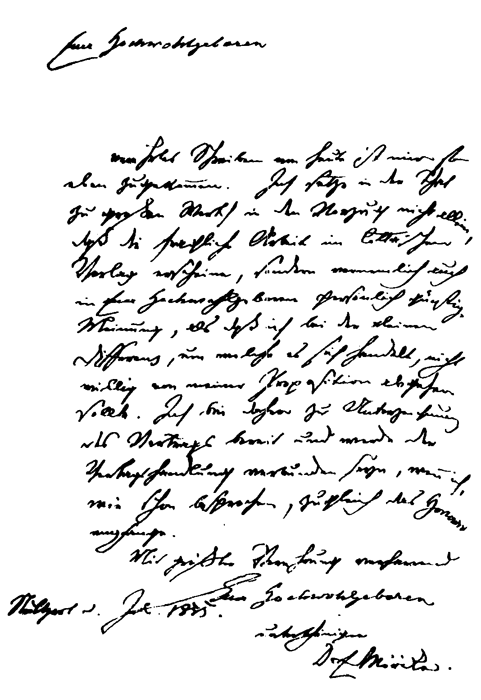 Euer Hochwohlgeboren
verehrtes Schreiben von heute ist mir so
eben zugekommen. Ich setze in der That
zu großen Werth in den Vorzug nicht allein,
daß die fragliche Arbeit im Cotta'schen
Verlag erscheine, sondern namentlich auch
in Euer Hochwohlgeboren persönlich günstige
Meinung, als daß ich bei der kleinen
Differenz, um welche es sich handelt, nicht
willig von meiner Proposition abgehen
sollte. Ich bin daher zu Unterzeichnung
des Vertrags bereit und werde der
Verlagshandlung verbunden seyn, wenn ich,
wie schon besprochen, zugleich das Honorar
empfange.
Mit größter Verehrung verharrend
Euer Hochwohlgeboren
Stuttgart d. Jul. 1875.
unterthäniger
Dr. E. Mörike.